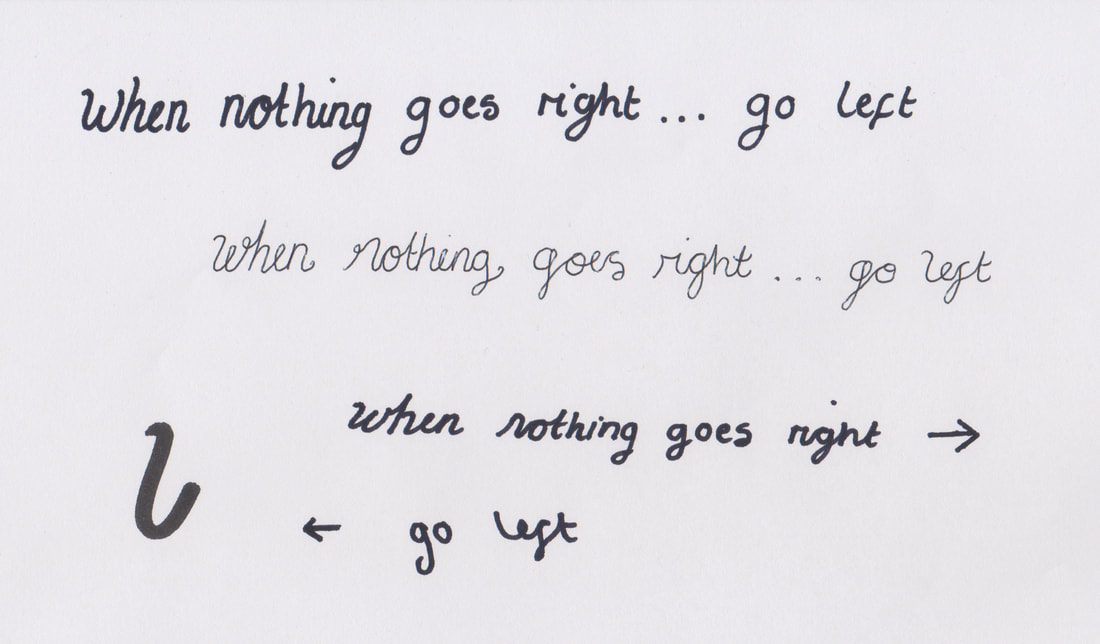 When nothing goes right... go left
when nothing goes right ... go left
when nothing goes right →
l
← go left